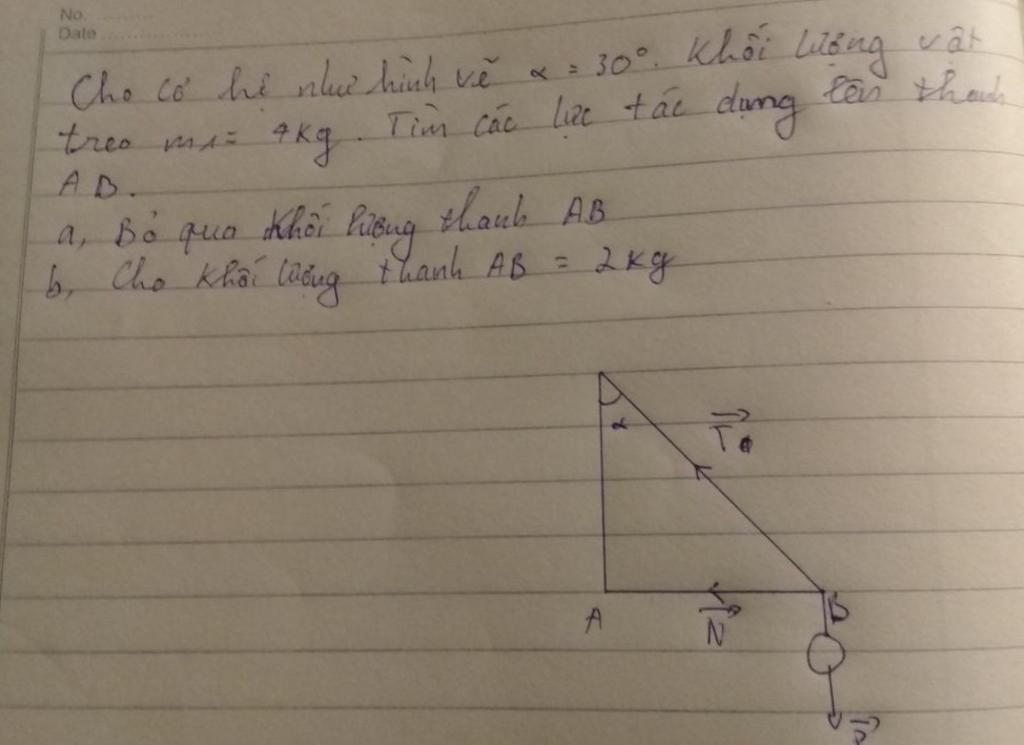 No. ............
Date ....................
Cho cơ hệ như hình vẽ α = 30°. Khối lượng vật
treo m₁ = 4kg. Tìm các lực tác dụng lên thanh
AB.
a, Bỏ qua khối lượng thanh AB
b, Cho khối lượng thanh AB = 2kg
α
T
A
N
B
P